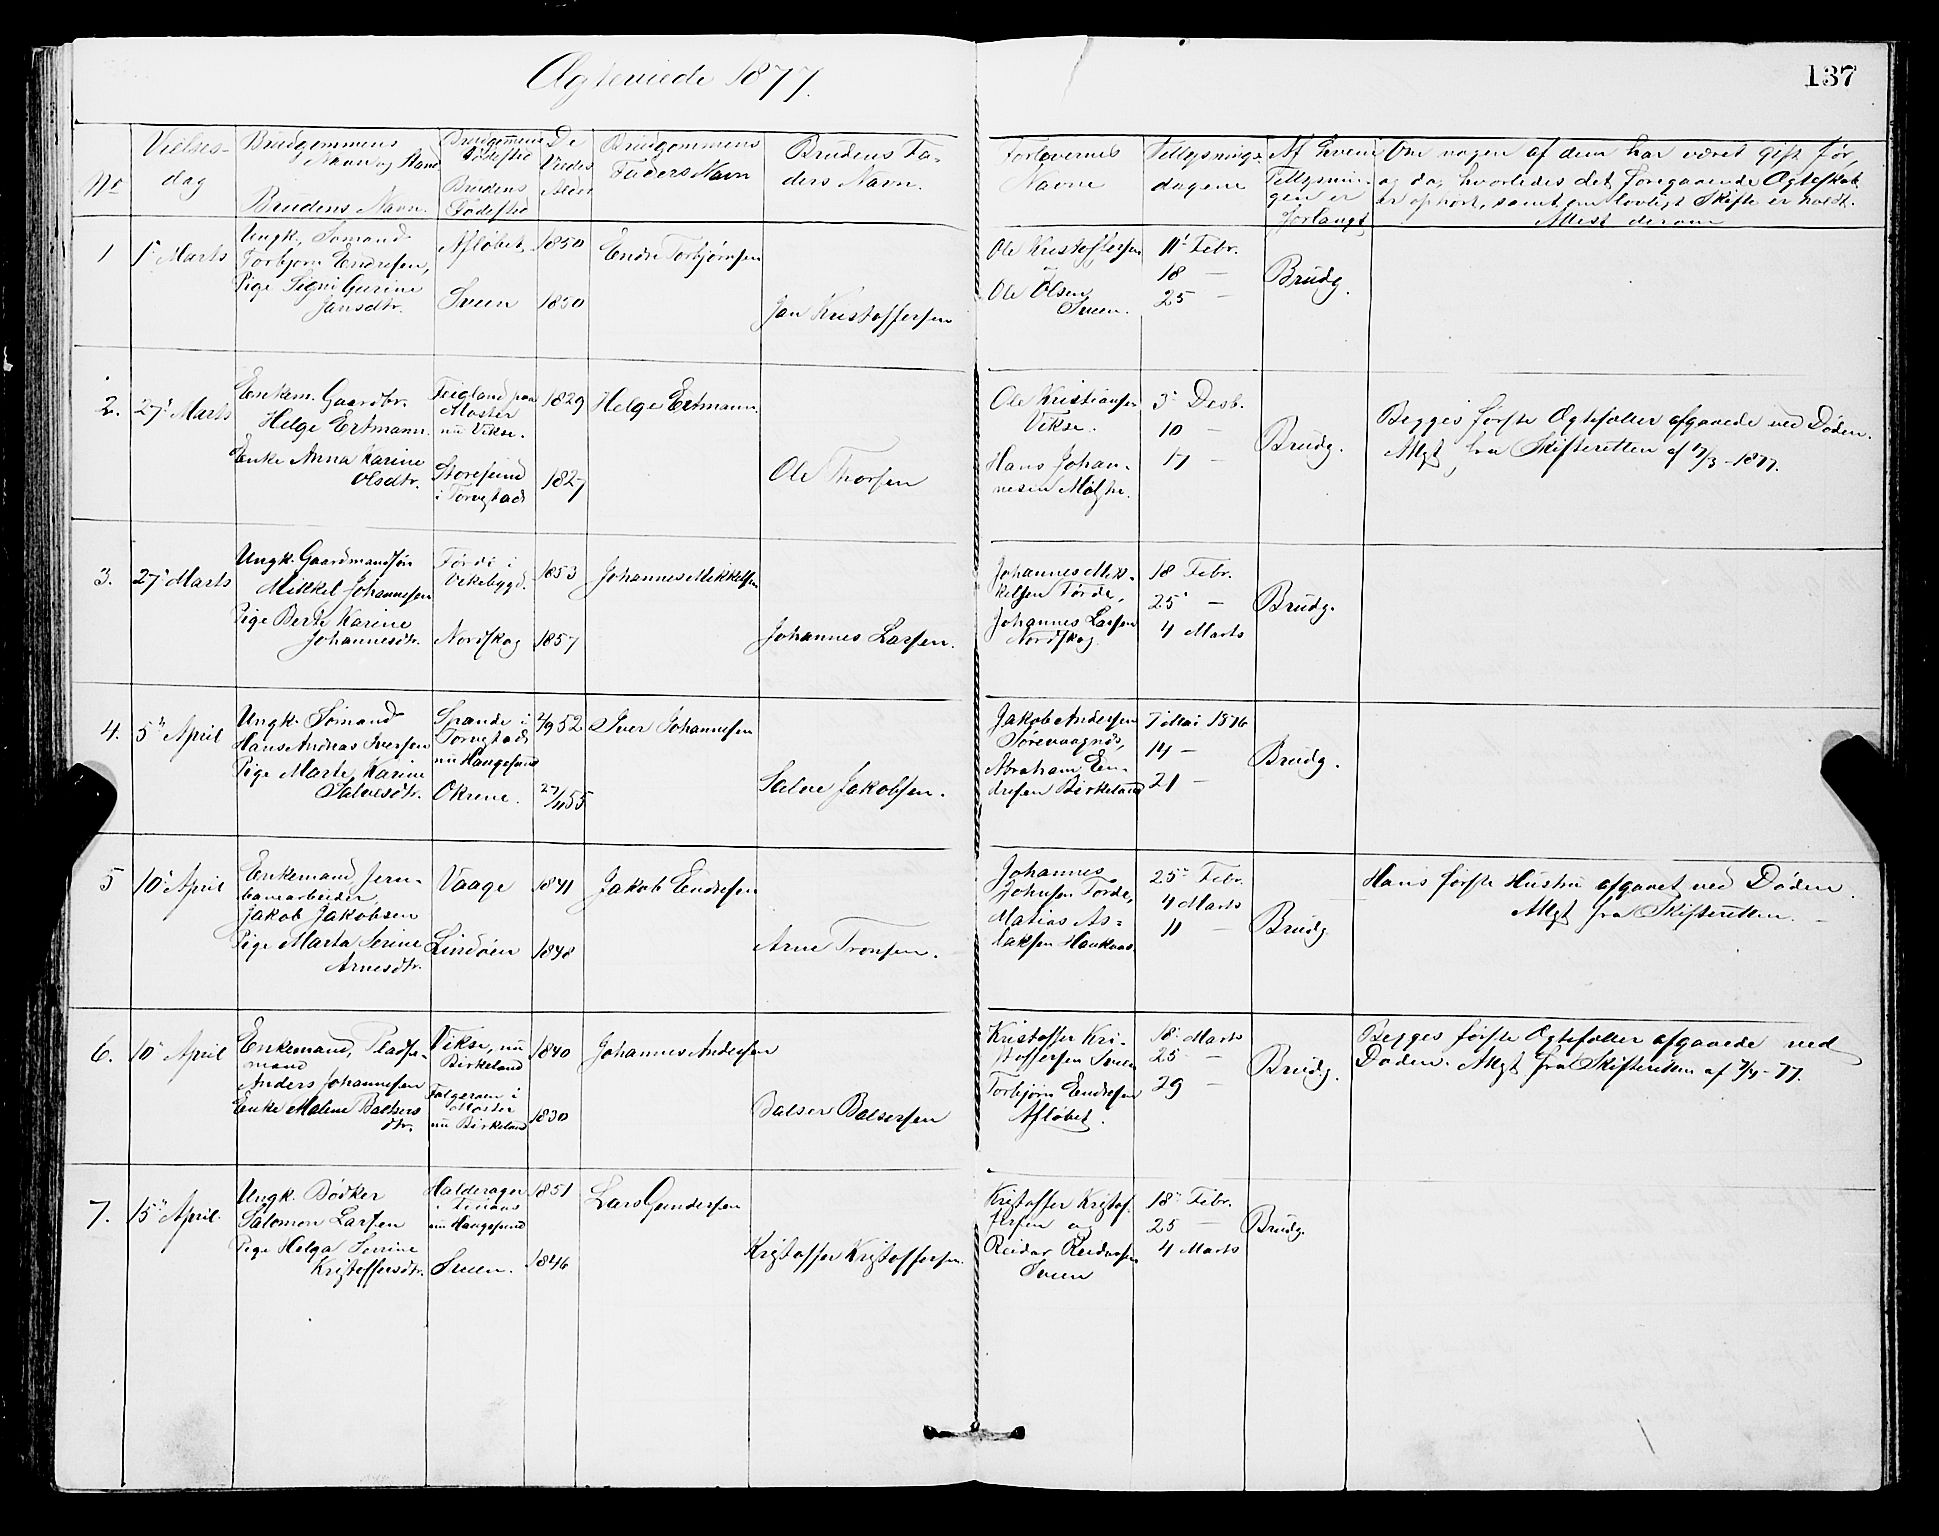 Ægteviede 1877.
137
No
Vielses-
dag
Brudgommens
Navn og Stand
Brudens Navn.
Brudgommens
Fødested
Brudens
Fødested
De
Viedes
Alder
Brudgommens
Faders Navn
Brudens Fa-
ders Navn.
Forlovernes
Navne
Tillysnings-
dagene
Af hvem
Tillysnin-
gen er
forlangt
Om nogen af dem har været gift før,
og da, hvorledes det foregaaende Ægteskab
er ophørt, samt om lovligt Skifte er holdt.
Attest derom
1
1ste Marts
Ungk. Sømand
Torbjørn Endresen,
Pige Signi Gurine
Jansdtr.
Afløbet
Sveen
1850
1850
Endre Torbjørnsen
Jan Kristoffersen
Ole Kristoffersen
Ole Olsen
Sveen.
11 Febr.
18 —
25 —
Brudg.
2.
27 Marts
Enkem. Gaardbr.
Helge Ertmann.
Enke Anna Karine
Olsdtr.
Feigland paa
Moster
nu Vikse.
Storesund
i Torvestad
1829
1827
Helge Ertmann.
Ole Thorsen
Ole Kristiansen
Vikse.
Hans Johan-
nesen
3 Desb.
10 —
17 —
Brudg.
Begges første Ægtefæller afgaaede ved Døden.
Attest fra Skifteretten af 7/3-1877.
3.
27 Marts
Ungk. Gaardmandssøn
Mikkel Johannesen
Pige Berte Karine
Johannesdtr.
Førde i
Vikebygd.
Nordskog
1853
1857
Johannes Mikkelsen
Johannes Larsen.
Johannes Mik-
kelsen Førde,
Johannes Larsen
Nordskog.
18 Febr.
25 —
4 Marts
Brudg.
4.
5 April
Ungk. Sømand
Hans Andreas Iversen
Pige Marte Karine
Salvesdtr.
Spande i
Torvestad
nu Haugesund
Økrene.
2/9 52
27/11 55
Iver Johannesen
Salve Jakobsen.
Jakob Andersen
Sørevaagnes,
Abraham En-
dresen Birkeland
7 Mai 1876
14 —
21 —
Brudg.
5
10 April
Enkemand Jern-
banearbeider
Jakob Jakobsen
Pige Marta Serine
Arnesdtr.
Vaage
Lindøen
1841
1848
Jakob Endresen
Arne Tronsen.
Johannes
Johnsen Førde,
Matias As-
laksen Haukaas
25 Febr.
4 Marts
11 —
Brudg
Hans første Hustru afgaaet ved Døden.
Attest fra Skifteretten.
6.
10 April
Enkemand, Pladse-
mand
Anders Johannesen
Enke Malene Baltsers
dtr.
Vikse, nu
Birkeland
i
Moster
nu Birkeland
1840
1830
Johannes Andersen
Balser Balsersen
Kristoffer Kri-
stoffersen Sveen
Torbjørn Endresen
Afløbet.
18 Marts
25 —
29 —
Brudg.
Begges første Ægtefæller afgaaede ved
Døden. Attest fra Skifteretten af 7/4-77.
7.
15 April.
Ungk. Bødker
Salomon Larsen
Pige Helga Serine
Kristoffersdtr.
Halderager
i Finaas
nu Haugesund
Sveen.
1851
1846
Lars Gundersen
Kristoffer Kristoffersen.
Kristoffer Kristof-
fersen og
Reidar Reidarsen
Sveen
18 Febr.
25 —
4 Marts
Brudg.